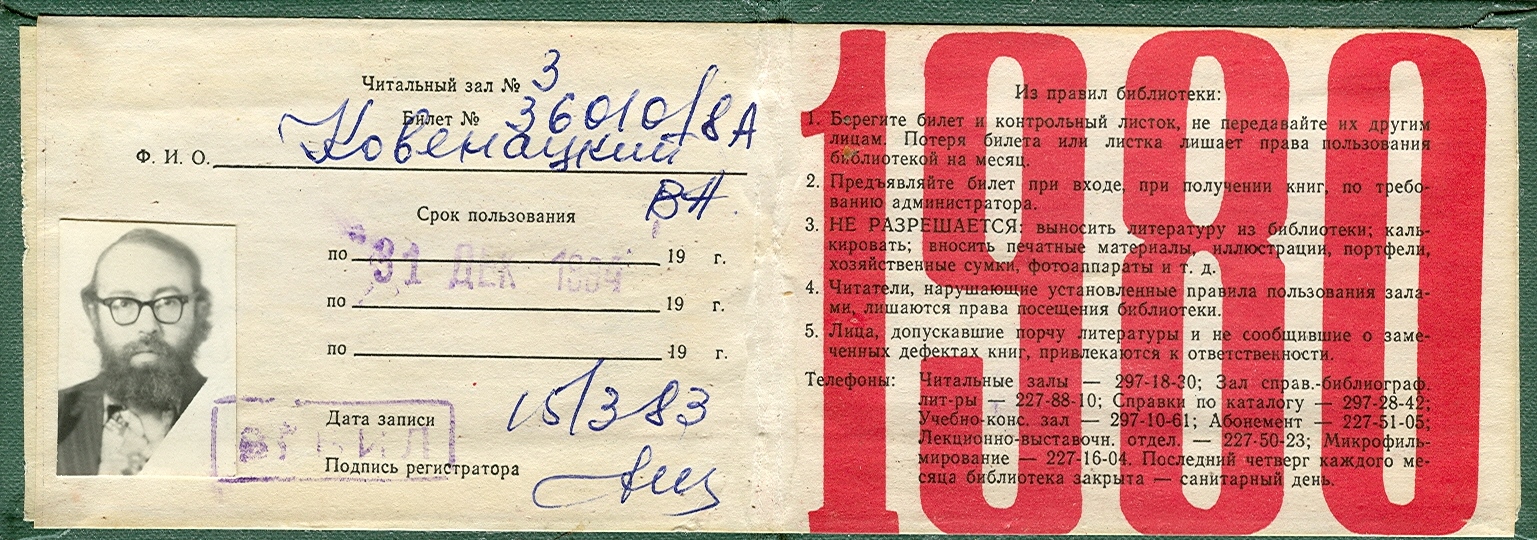 Читальный зал № 3
Билет № 36010/8А
Ф. И. О. Ковенацкий
ВА
Срок пользования
по 31 ДЕК 1984 19 г.
по 19 г.
по 19 г.
Дата записи 15/3 83
Подпись регистратора
ВГБИЛ
1980
Из правил библиотеки:
1. Берегите билет и контрольный листок, не передавайте их другим
лицам. Потеря билета или листка лишает права пользования
библиотекой на месяц.
2. Предъявляйте билет при входе, при получении книг, по требо-
ванию администратора.
3. НЕ РАЗРЕШАЕТСЯ: выносить литературу из библиотеки; каль-
кировать; вносить печатные материалы, иллюстрации, портфели,
хозяйственные сумки, фотоаппараты и т. д.
4. Читатели, нарушающие установленные правила пользования зала-
ми, лишаются права посещения библиотеки.
5. Лица, допускавшие порчу литературы и не сообщившие о заме-
ченных дефектах книг, привлекаются к ответственности.
Телефоны: Читальные залы — 297-18-30; Зал справ.-библиограф.
лит-ры — 227-88-10; Справки по каталогу — 297-28-42;
Учебно-конс. зал — 297-10-61; Абонемент — 227-51-05;
Лекционно-выставочн. отдел. — 227-50-23; Микрофиль-
мирование — 227-16-04. Последний четверг каждого ме-
сяца библиотека закрыта — санитарный день.